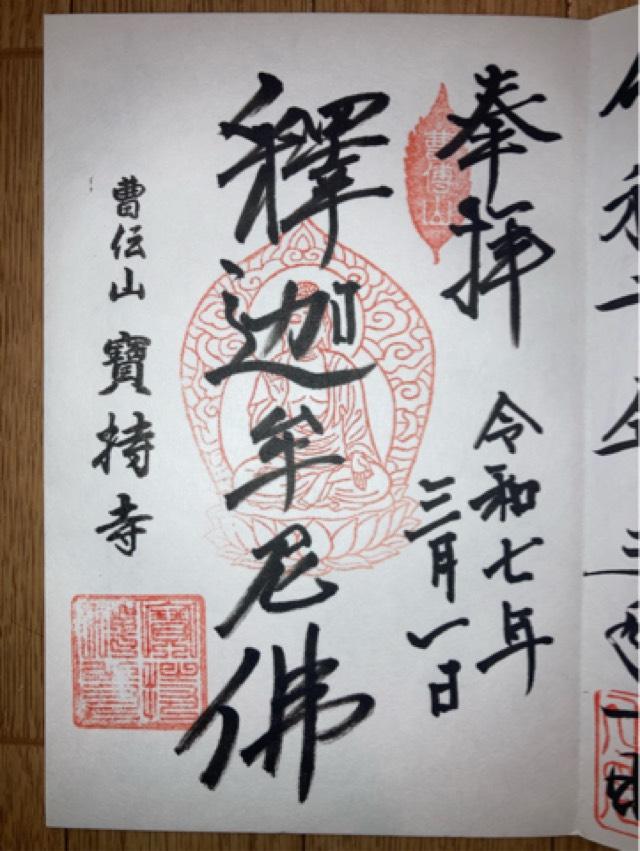 奉拝
令和七年
三月一日
曹傳山
釋迦牟尼佛
曹伝山 寶持寺